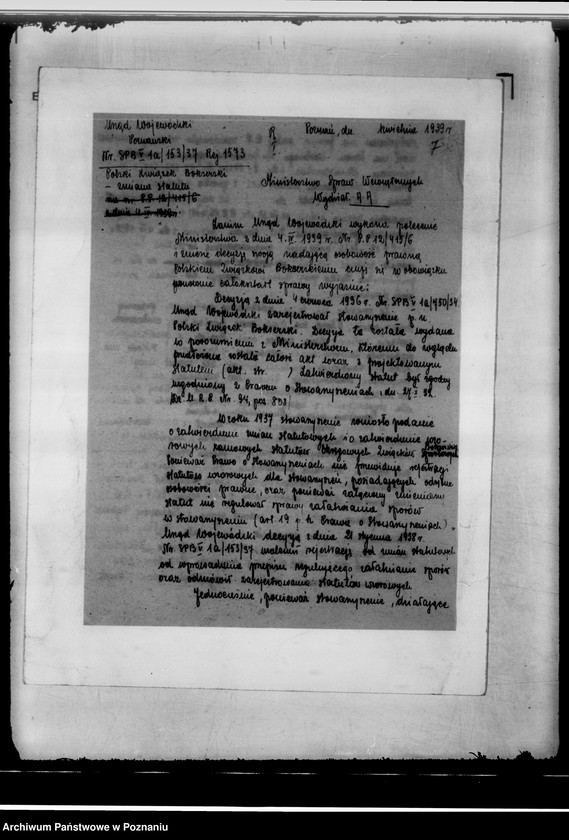 Urząd Wojewódzki
Poznański
Nr. SPB V 1a/153/37 Rej 1573
Poznań, dn. kwietnia 1939 r
7
Polski Związek Bokserski
– zmiana statutu
na nr. P.P. 12/415/6
z dnia 4.IV.1939r.
Ministerstwo Spraw Wewnętrznych
Wydział A A
Zanim Urząd Wojewódzki wykona polecenie
Ministerstwa z dnia 4.IV 1939 r. Nr. P.P 12/415/6
i zmieni decyzję swoją nadającą osobowość prawną
Polskiemu Związkowi Bokserskiemu czuje się w obowiązku
ponownie całokształt sprawy wyjaśnić:
Decyzją z dnia 4 czerwca 1936 r. Nr. SPB V 1a/450/34
Urząd Wojewódzki zarejestrował stowarzyszenie p. n.
Polski Związek Bokserski. Decyzja ta została wydana
w porozumieniu z Ministerstwem, któremu do wglądu
przedłożona została całość akt wraz z projektowanym
statutem (akt. str. ) Zatwierdzony statut był zgodny
uzgodniony z Prawem o Stowarzyszeniach, dn. 27.X 32.
Dz. U. R.P. Nr. 94, poz 808)
W roku 1937 stowarzyszenie wniosło podanie
o zatwierdzenie zmian statutowych i o zatwierdzenie wzo-
rowych ramowych statutów Okręgowych Związków
Ponieważ Prawo o Stowarzyszeniach nie przewiduje rejestracji
statutów wzorowych dla stowarzyszeń, posiadających odrębne
osobowości prawne, oraz ponieważ załączony zmieniony
statut nie regulował sprawy załatwiania sporów
w stowarzyszeniu (art. 19 p. h Prawa o Stowarzyszeniach).
Urząd Wojewódzki decyzją z dnia 21 stycznia 1938 r.
Nr SPB V 1a/153/37 uzależnił rejestrację od zmian statutowych
od wprowadzenia przepisu regulującego załatwianie sporów
oraz odmówił zarejestrowania statutów wzorowych
Jednocześnie, ponieważ stowarzyszenie, działające
Archiwum Państwowe w Poznaniu